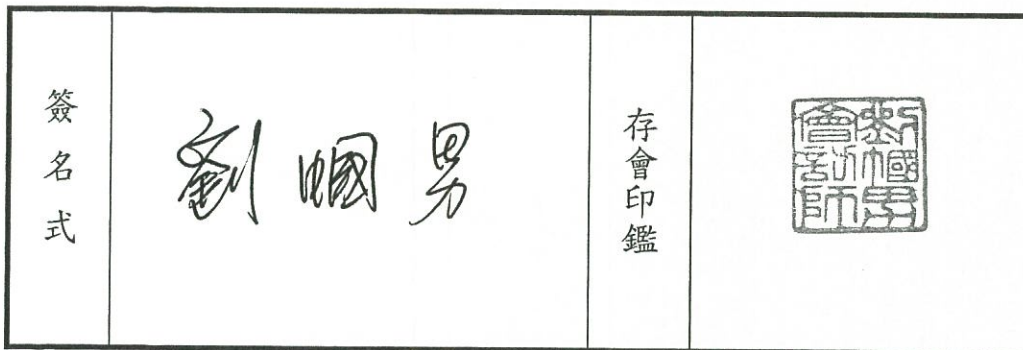 簽名式
劉幗男
存會印鑑
劉幗男會計師